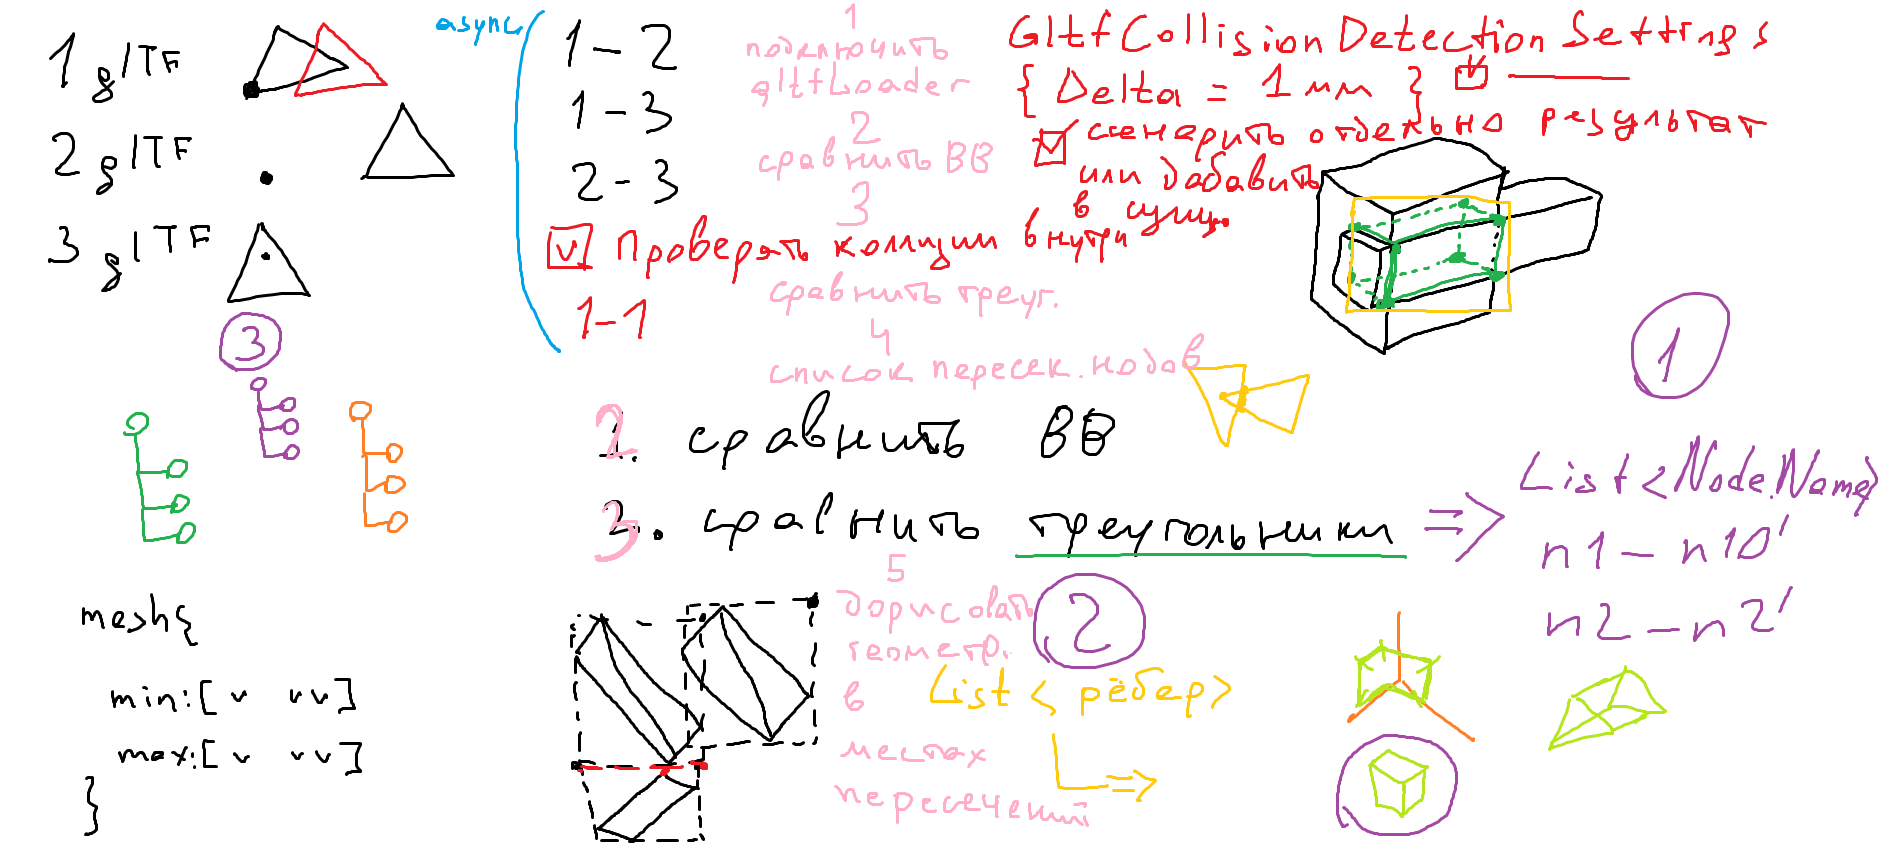 1 glTF
2 glTF
3 glTF
async
1 - 2
1 - 3
2 - 3
V Проверять коллизии внутри
1 - 1
1
подключить
gltfLoader
2
сравнить BB
3
сравнить треуг.
4
список пересек. нодов
GltfCollisionDetectionSettings
{ Delta = 1 мм }
сгенерить отдельно результат
или добавить
в сущ.
1
3
2. сравнить BB
3. сравнить треугольники => List<Node.Name>
n1 - n10'
n2 - n2'
5
дорисовать
геометр.
в
местах
пересечений
2
List < рёбер>
=>
mesh{
min:[ v vv]
max:[ v vv]
}